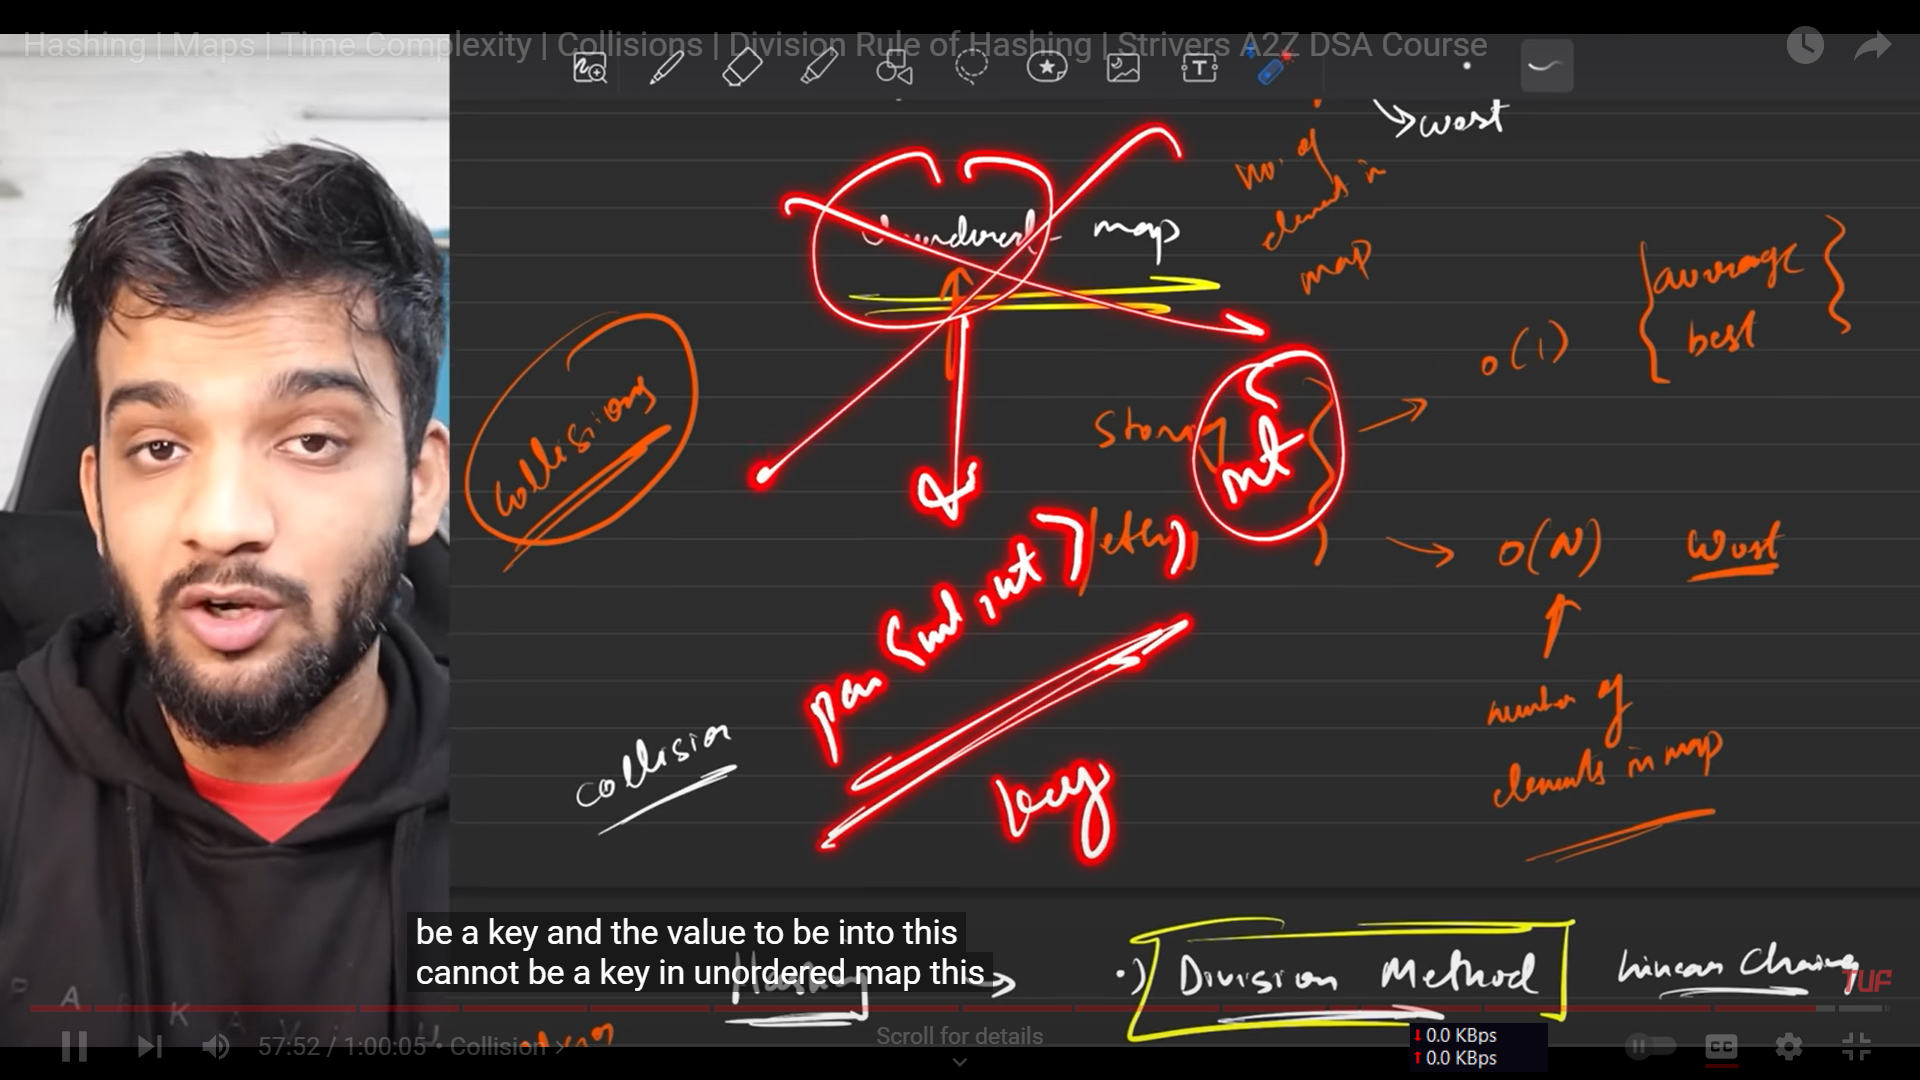 Hashing | Maps | Time Complexity | Collisions | Division Rule of Hashing | Strivers A2Z DSA Course
worst
no. of
elements in
map
map
average
best
O(1)
collisions
Storing
int
fetching
O(N) worst
pair <int, int>
number of
elements in map
collision
key
be a key and the value to be into this
cannot be a key in unordered map this
Hashing
Division Method
Linear Chaining
TUF
57:52 / 1:00:05 • Collision
Scroll for details
0.0 KBps
0.0 KBps
CC